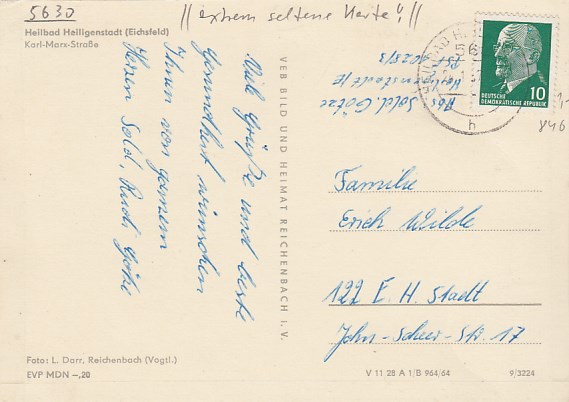 5630
"extrem seltene Karte"!!
Heilbad Heiligenstadt (Eichsfeld)
Karl-Marx-Straße
Viele Grüße und beste
Gesundheit wünschen
Ihnen von ganzem
Herzen Sold. Rudi Götze
VEB BILD UND HEIMAT REICHENBACH i. V.
Abs Sold Götze
Heiligenstadt
56
h
DEUTSCHE
DEMOKRATISCHE REPUBLIK
10
1,-
846
Familie
Erich Wilde
122 E. H. Stadt
John-Scheer-Str. 17
Foto: L. Darr, Reichenbach (Vogtl.)
EVP MDN –,20
V 11 28 A 1/B 964/64
9/3224